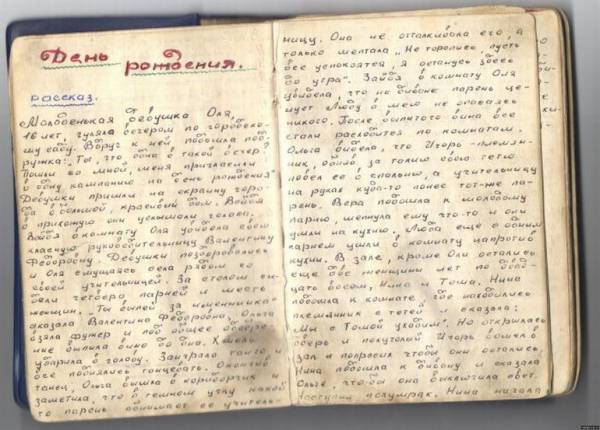 День
рождения.
рассказ.
"Молоденькая девушка Оля,
16 лет, гуляла вечером по городско-
му саду. Вдруг к ней подошла под-
ружка: "Ты, что одна в такой вечер?
Пошли со мной, меня пригласили
в одну кампанию на день рождения"
Девушки пришли на окраину горо-
да в большой, красивый дом. Войдя
в прихожую они услышали голоса.
Войдя в комнату Оля увидела свою
классную руководительницу Валентину
Федоровну. Девушки поздоровались
и Оля смущаясь села рядом со
своей учительницей. За столом си-
дели четверо парней и шесть
женщин. "Ты выпей за именинника"
сказала Валентина Федоровна. Ольга
взяла фужер и под общее одобре-
ние выпила вино до дна. Хмель
ударил в голову. Заиграло танго и
все поднялись танцевать. Окончив
танец, Ольга вышла в коридорчик и
заметила, что в темном углу какой
то парень обнимает ее учитель-
ницу. Она не отталкивала его, а
только шептала "Не торопись, пусть
все успокоятся, я останусь здесь
до утра". Зайдя в комнату Оля
увидела, что на диване парень це-
лует Любу и шею не стесняясь
никого. После выпитого вина все
стали расходиться по комнатам.
Ольга видела, что Игорь - племян-
ник, обняв за талию свою тетю
повел ее в спальню, а учительницу
на руках куда-то понес тот-же па-
рень. Вера подошла к молодому
парню, шепнула ему что-то и они
ушли на кухню. Люба еще с одним
парнем ушли в комнату напротив
кухни. В зале, кроме Оли остались
еще две женщины лет по двад-
цать восемь, Нина и Тома. Нина
подошла к комнате где находились
племянник с тетей и сказала:
"Мы с Томой уходим". Но открылась
дверь и полуголый Игорь вошел в
зал и попросил чтобы они остались.
Нина подошла к дивану и сказала
Ольге, чтобы она выключила свет.
Наступил полумрак. Нина начала